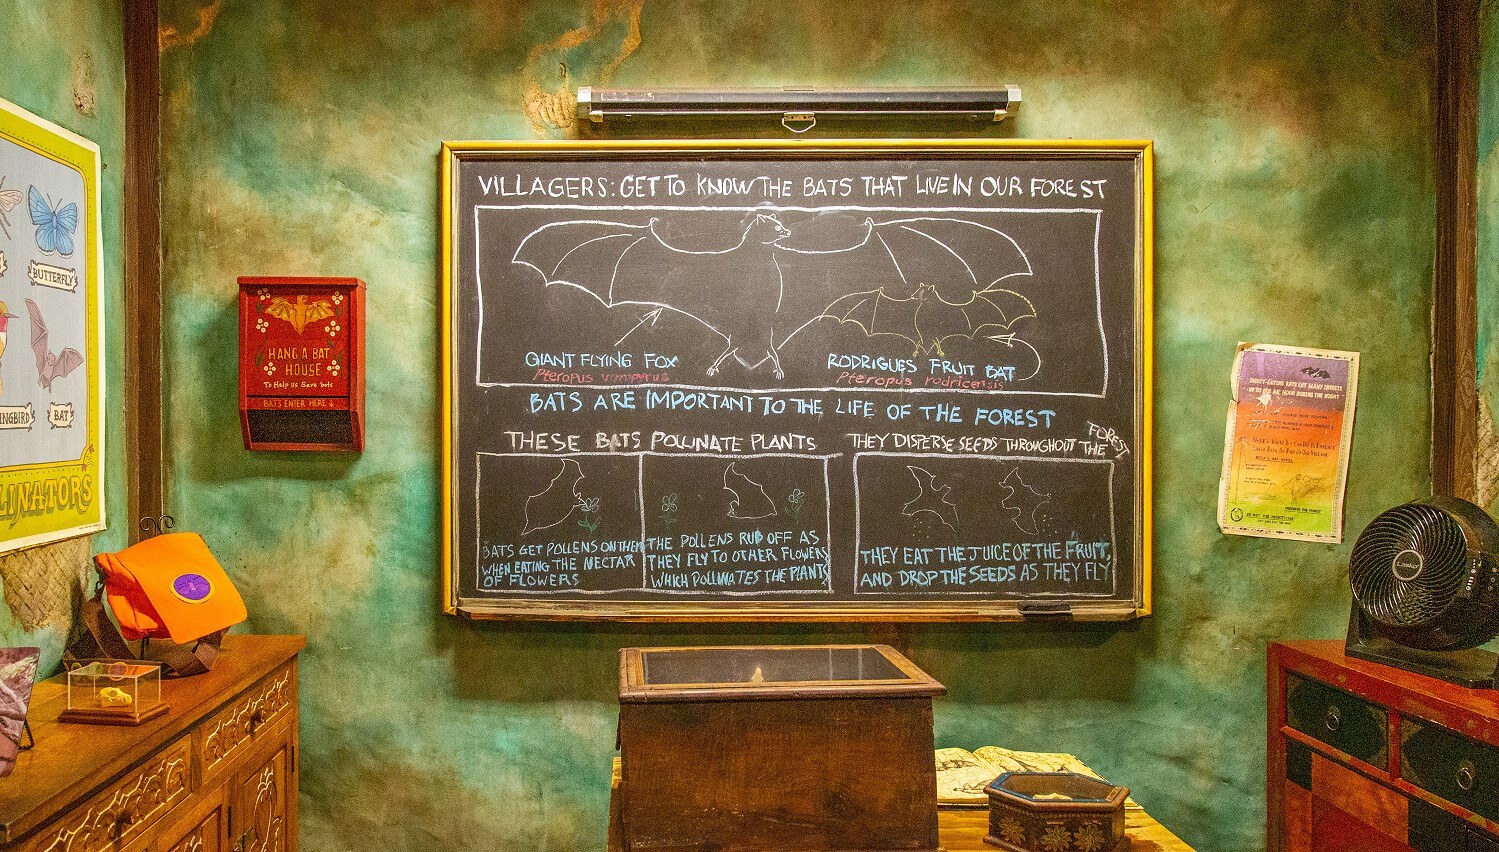 BUTTERFLY
BAT
LINATORS
HANG A BAT
HOUSE
To Help us Save bats
BATS ENTER HERE
VILLAGERS: GET TO KNOW THE BATS THAT LIVE IN OUR FOREST
GIANT FLYING FOX
Pteropus vampyrus
RODRIGUES FRUIT BAT
Pteropus rodricensis
BATS ARE IMPORTANT TO THE LIFE OF THE FOREST
THESE BATS POLLINATE PLANTS
BATS GET POLLENS ON THEM
WHEN EATING THE NECTAR
OF FLOWERS
THE POLLENS RUB OFF AS
THEY FLY TO OTHER FLOWERS
WHICH POLLINATES THE PLANTS
THEY DISPERSE SEEDS THROUGHOUT THE FOREST
THEY EAT THE JUICE OF THE FRUIT,
AND DROP THE SEEDS AS THEY FLY
INSECT-EATING BATS EAT MANY INSECTS